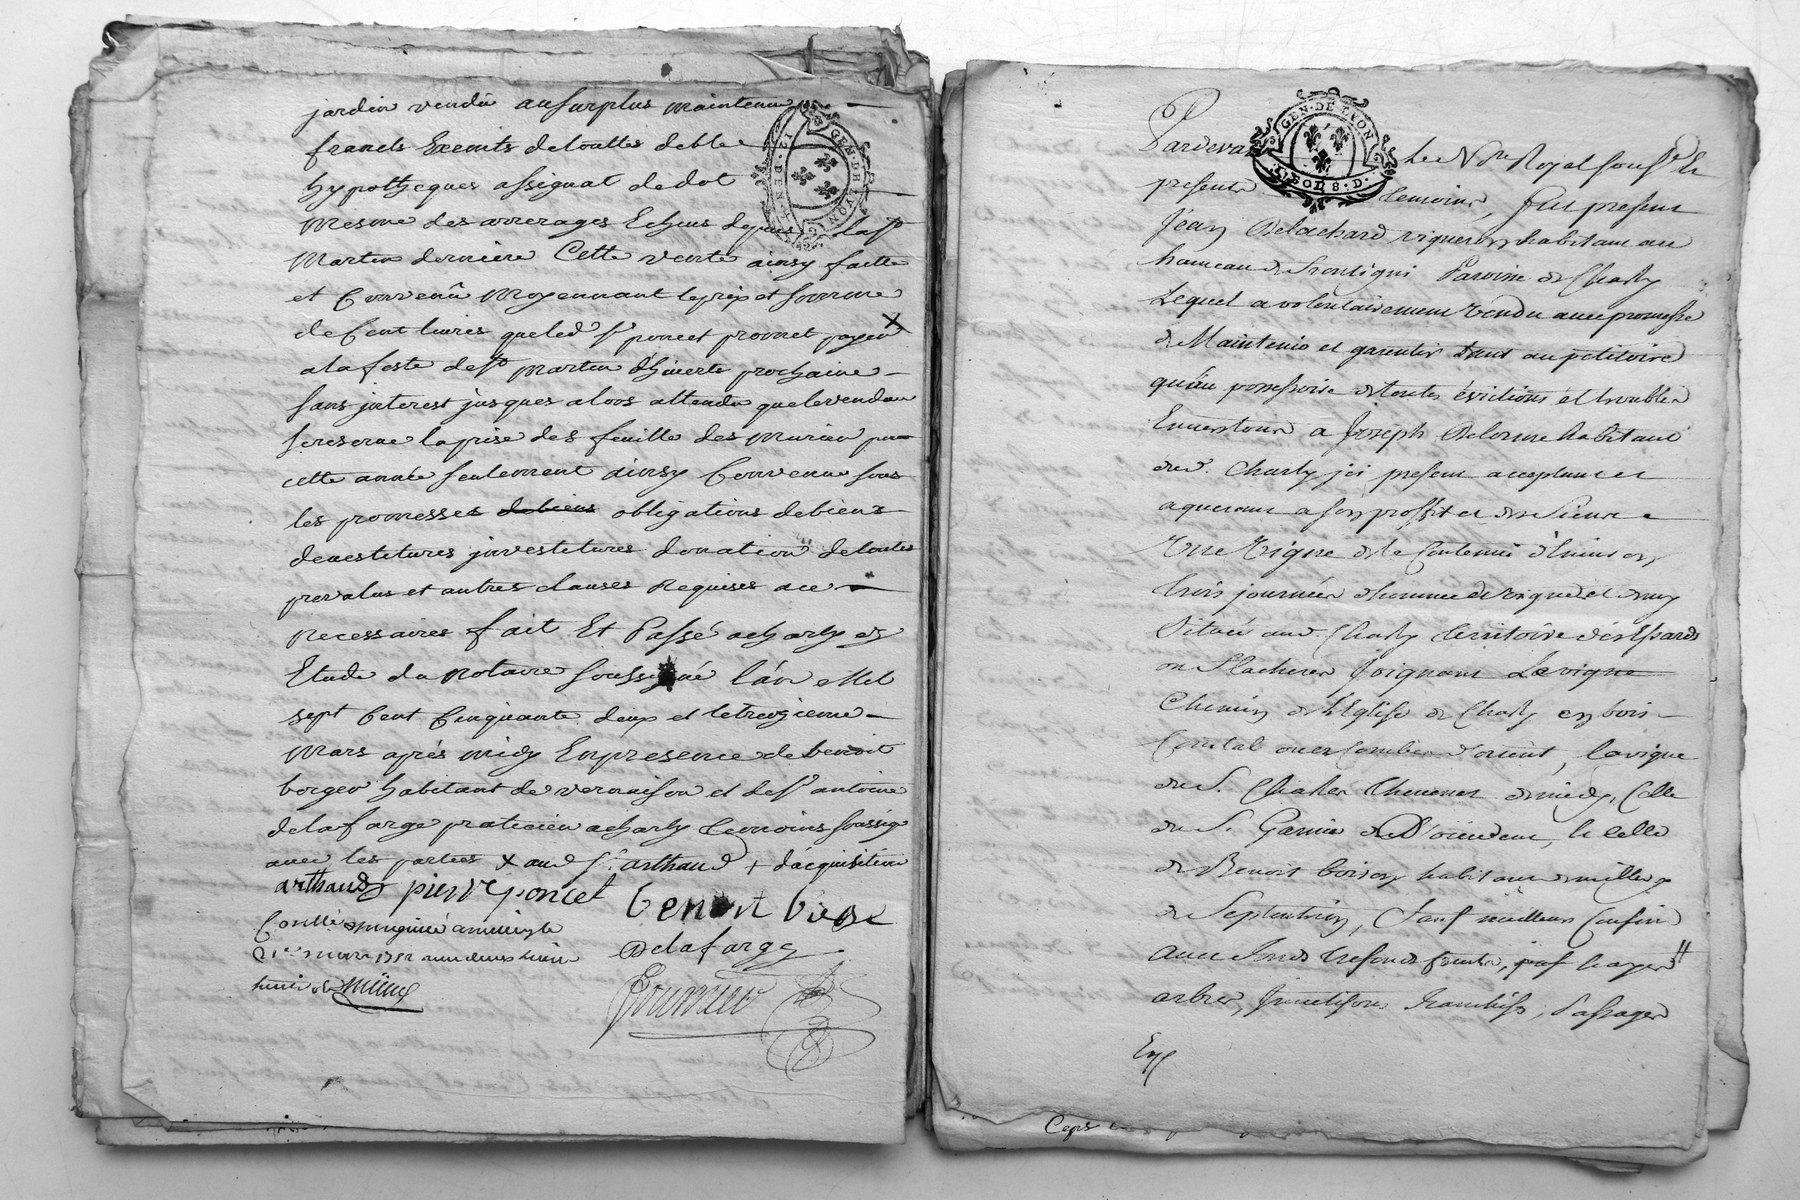 jardin vendu au surplus maintenu
francs Exemts de touttes debte
hypotheques assignat de dot
Mesme des arrerages Echeus depuis la st
GEN. DE LYON
Martin derniere Cette vente ainsy faitte
et Convenû Moyennant le prix et somme
de Cent livres que led sr poncet promet payer X
a la feste de st martin d'hiverte prochaine
sans interest jusques alors attendu que le vendeur
se reserve la prise des feuille des murier pour
cette année seulement ainsy Convenu sous
les promesses de biens obligations de biens
devestitures investitures donation de toutes
prevalus et autres clauses Requises a ce
Necessaires fait Et Passé a charly en
Etude du notaire soussigné l'an Mil
sept Cent Cinquante deux et le treizieme
Mars après midy En presence de benoit
borgeo habitant de vernaison et de sr antoine
delafarge praticien a charly temoins soussig
avec les parties X aud sr arthaud + d'acquisition
arthaud pierre poncet benoit
Delafarge
mars 1752
Pardevant le Nre Royal sousné Et
GEN. DE LYON
presents temoins, fut present
Jean Delachard vigneron habitant au
hameau de Frontigni Paroisse de Charly
Lequel a volontairement vendu avec promesse
de Maintenir et garentir tant au petitoire
qu'au possessoire de toutes évictions et troubles
Envers tous a Joseph Delorme habitant
aud. Charly ici present acceptant et
aquerant a son proffit et des siens
Une Vigne de la Contenue d'environ
trois journées d'homme de vigne et
Située aud. Charly territoire des
ou Flacheres Joignant La vigne
Chemin de l'Eglise de Charly
d'orient, la vigne
du S. Charles Thevenet de midy, Celle
du S. Garnier d'occident, & celle
de Benoit boiron habitant de millery
de Septentrion, Sauf meilleurs Confins
avec fonds trefonds
arbres, franchises, Passages